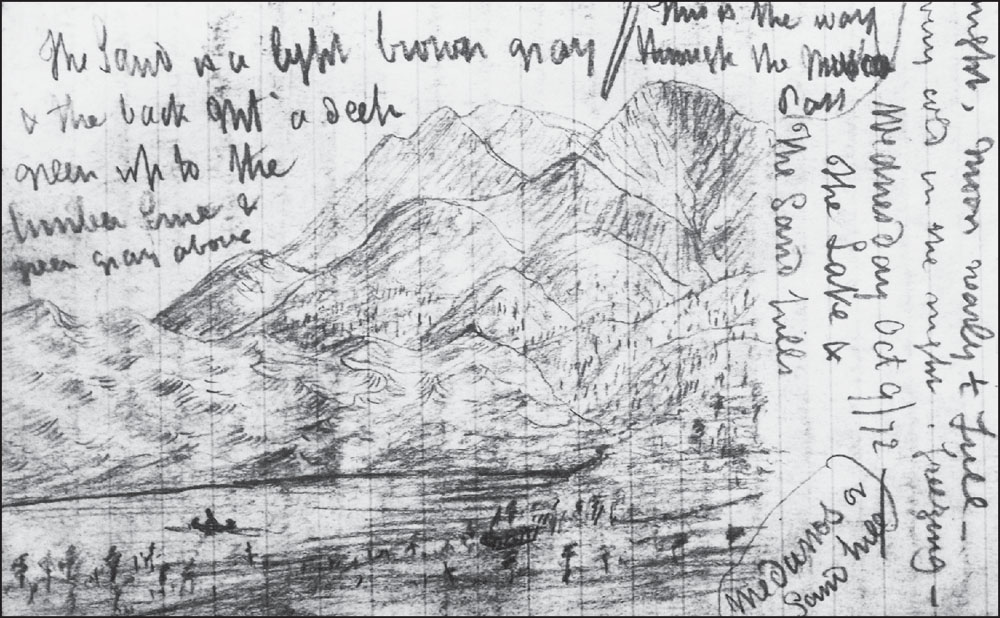 The Sand is a light brown gray
& the back mt a deep
green up to the
timber line &
green gray above
This is the way
through the
Pass
night, moon nearly + full —
was in the night. freezing —
Wednesday Oct 9/72
The Lake &
The Sand hills
Sand hills